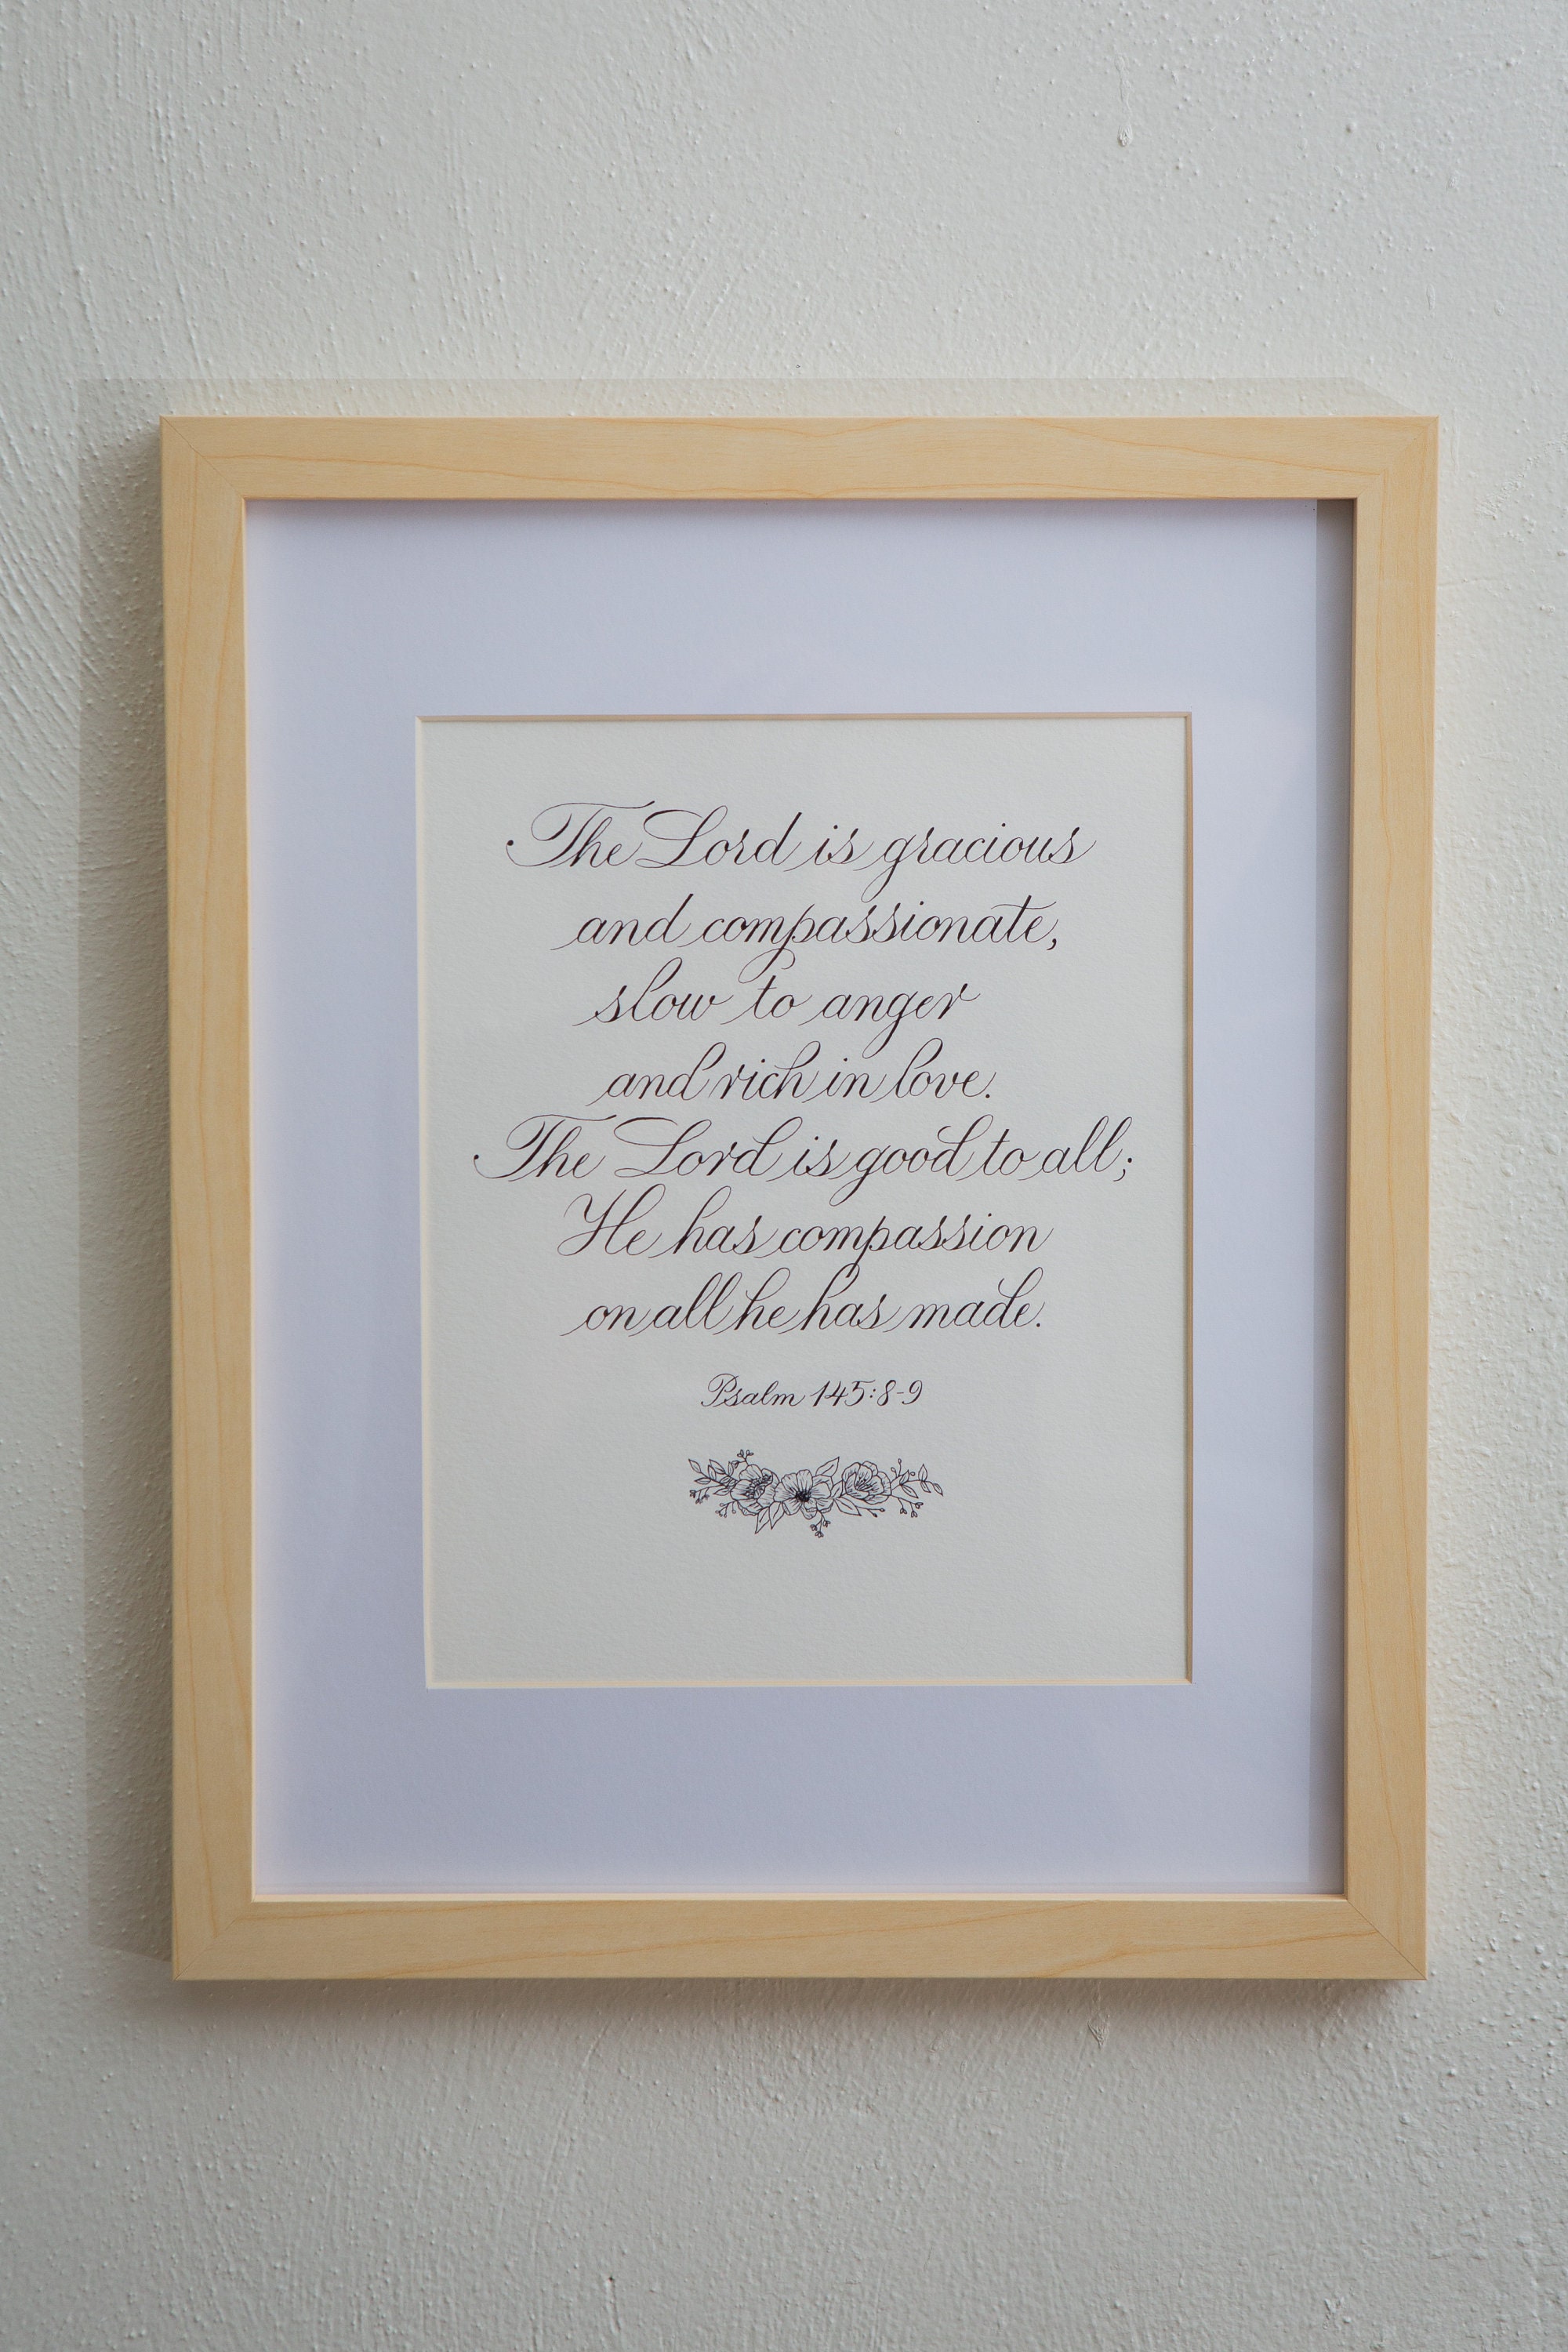 The Lord is gracious
and compassionate,
slow to anger
and rich in love.
The Lord is good to all;
He has compassion
on all he has made.
Psalm 145:8-9